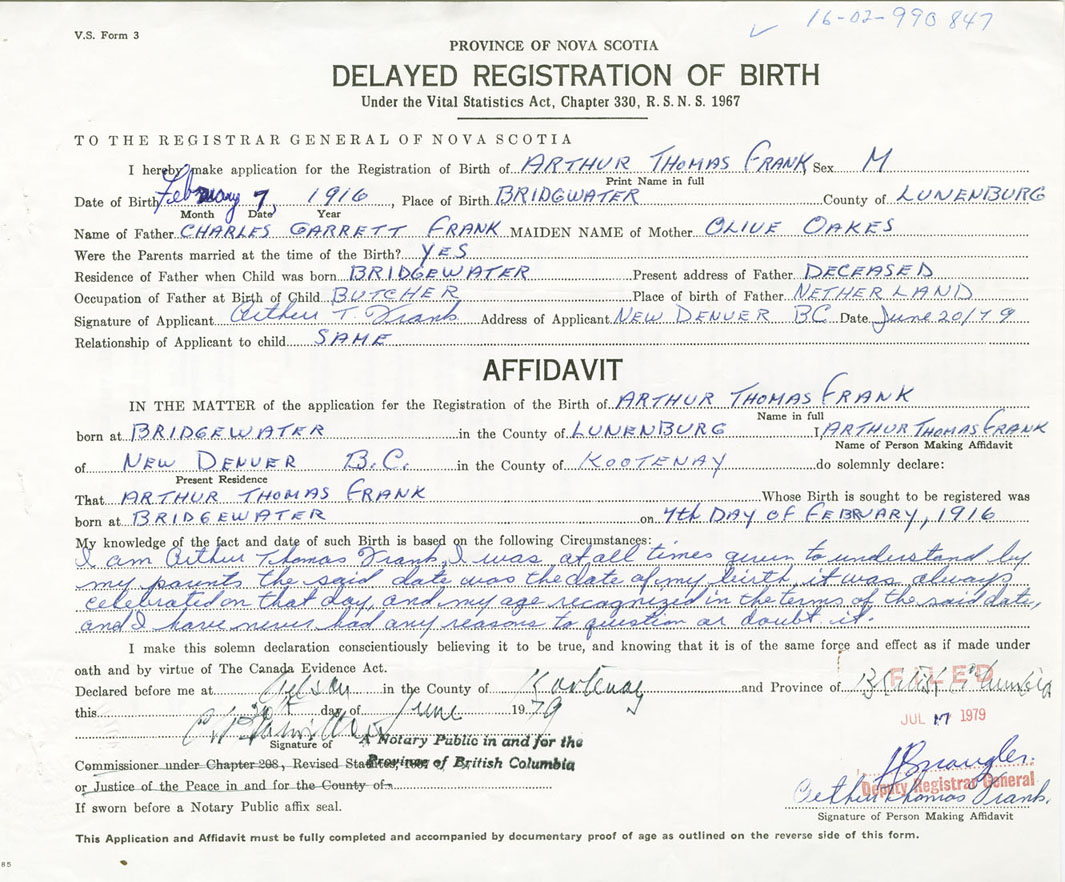 16-02-990 847
V.S. Form 3
PROVINCE OF NOVA SCOTIA
DELAYED REGISTRATION OF BIRTH
Under the Vital Statistics Act, Chapter 330, R.S.N.S. 1967
TO THE REGISTRAR GENERAL OF NOVA SCOTIA
I hereby make application for the Registration of Birth of ARTHUR THOMAS FRANK Sex M
Print Name in full
Date of Birth February 7, 1916, Place of Birth BRIDGWATER County of LUNENBURG
Month Date Year
Name of Father CHARLES GARRETT FRANK MAIDEN NAME of Mother OLIVE OAKES
Were the Parents married at the time of the Birth? YES
Residence of Father when Child was born BRIDGEWATER Present address of Father DECEASED
Occupation of Father at Birth of Child BUTCHER Place of birth of Father NETHERLAND
Signature of Applicant Arthur T. Frank Address of Applicant NEW DENVER BC Date June 20/79
Relationship of Applicant to child SAME
AFFIDAVIT
IN THE MATTER of the application for the Registration of the Birth of ARTHUR THOMAS FRANK
Name in full
born at BRIDGEWATER in the County of LUNENBURG I ARTHUR THOMAS FRANK
Name of Person Making Affidavit
of NEW DENVER B.C. in the County of KOOTENAY do solemnly declare:
Present Residence
That ARTHUR THOMAS FRANK Whose Birth is sought to be registered was
born at BRIDGEWATER on 7th DAY OF FEBRUARY, 1916
My knowledge of the fact and date of such Birth is based on the following Circumstances:
I am Arthur Thomas Frank, I was at all times given to understand by
my parents the said date was the date of my birth, it was always
celebrated on that day, and my age recognized in the terms of the said date,
and I have never had any reasons to question or doubt it.
I make this solemn declaration conscientiously believing it to be true, and knowing that it is of the same force and effect as if made under
oath and by virtue of The Canada Evidence Act.
Declared before me at Nelson in the County of Kootenay and Province of British Columbia
FILED
this 20th day of June 1979
JUL 17 1979
Signature of A Notary Public in and for the
Province of British Columbia
Commissioner under Chapter 208, Revised Statutes,
or Justice of the Peace in and for the County of
Deputy Registrar General
Arthur Thomas Frank.
If sworn before a Notary Public affix seal.
Signature of Person Making Affidavit
This Application and Affidavit must be fully completed and accompanied by documentary proof of age as outlined on the reverse side of this form.
85